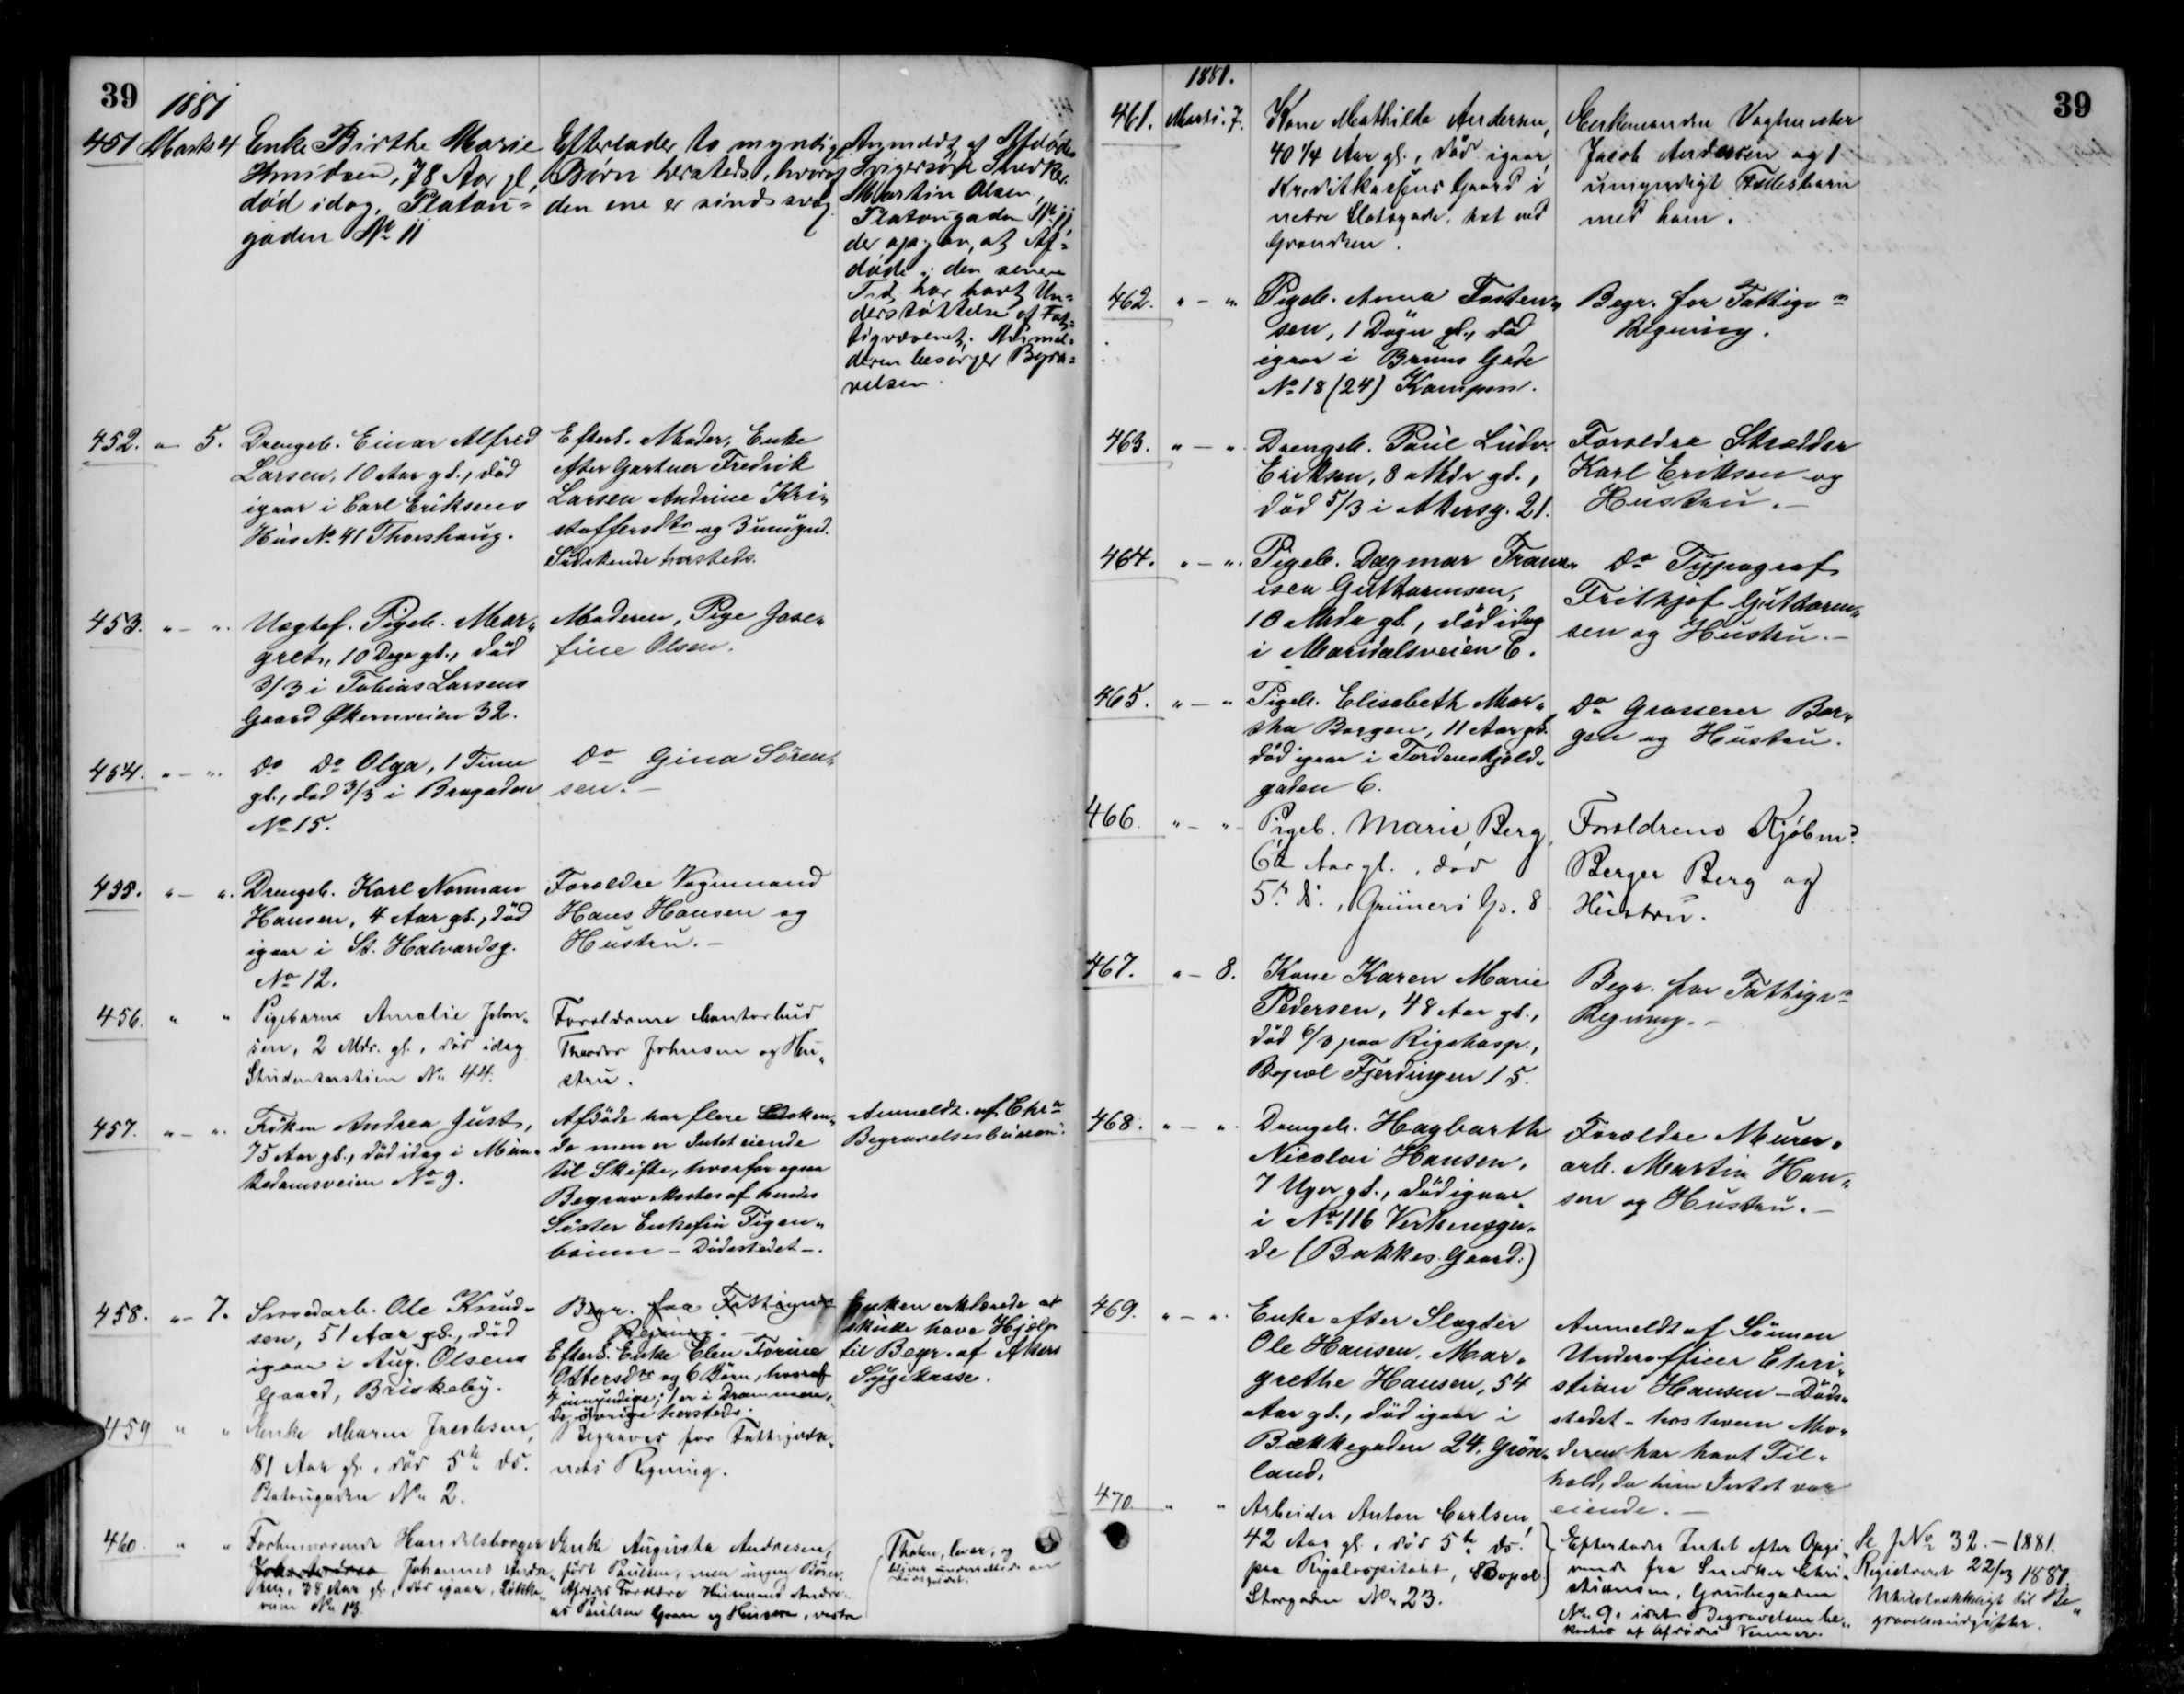 39
1881
451 Marts 4 Enke Birthe Marie
Knudsen, 78 Aar gl,
død idag, Platou-
gaden No 11
Efterlader to myndige
Børn hersteds, hvoraf
den ene er sindssvag.
Anmeldt af Afdødes
Svigersøn Snedker
Martin Olsen,
Platougaden No 11
der opgav, at Af-
døde i den senere
Tid har havt Un-
derstøttelse af Fat-
tigvæsenet. Anmel-
deren besørger Begra-
velsen.
452. " 5. Drengeb. Einar Alfred
Larsen, 10 Aar gl., død
igaar i Carl Eriksens
Hus No 41 Thorshaug.
Efterl. Moder, Enke
efter Gartner Fredrik
Larsen Andrine Kri-
stoffersdtr og 3 umynd.
Sødskende hersteds.
453. " - " Uægtef. Pigeb. Mar-
gret, 10 Dage gl., død
3/3 i Tobias Larsens
Gaard Økernveien 32.
Moderen, Pige Jose-
fine Olsen.
454. " - " Do Do Olga, 1 Time
gl., død 3/3 i Brugaden
No 15.
Do Gina Søren-
sen. -
455. " - " Drengeb. Karl Norman
Hansen, 4 Aar gl., død
igaar i St. Halvardsg.
No 12.
Forældre Vognmand
Hans Hansen og
Hustru. -
456. " " Pigebarn Amalie John-
sen, 2 Mdr. gl., død idag
Studenterstien No 44.
Forældrene Kontorbud
Theodor Johnsen og Hu-
stru.
457. " - " Frøken Andrea Just,
75 Aar gl., død idag i Mun-
kedamsveien No 9.
Afdøde har flere Sødsken-
de men er Intet eiende
til Skifte, hvorfor ogsaa
Begrav. kostes af hendes
Søster Enkefru Figen-
baum - Dødsstedet -.
Anmeldt af Chra
Begravelsesbureau.
458. " - 7. Smedarb. Ole Knud-
sen, 51 Aar gl., død
igaar i Aug. Olsens
Gaard, Briskeby.
Begr. for Fattigv.
Regning. -
Efterl. Enke Elen Torine
Ottersdtr og 6 Børn, hvoraf
4 umyndige; 1 er i Drammen,
de øvrige hersteds.
Enken erklærede at
skulde have Hjælp
til Begr. af Akers
Sygekasse.
459 " " Enke Maren Jacobsen,
81 Aar gl., død 5te ds.
Platougaden No 2.
Begraves for Fattigvæse-
nets Regning.
460. " " Forhenværende Handelsborger
Johannes Andre-
sen, 38 Aar gl., død igaar, Løkke-
veien No 13.
Enke Augusta Andresen,
født Paulsen, men ingen Børn.
Afdødes Forældre Husmand Andre-
as Paulsen Graan og Hustru, vestre
Thoten, lever, og
bliver underrettede om
Dødsfaldet.
39
1881.
461. Marts. 7. Kone Mathilde Andersen,
40 1/4 Aar gl., død igaar,
Kreditkassens Gaard i
nedre Slotsgade, tæt ved
Grændsen.
Enkemanden Vagtmester
Jacob Andersen og 1
umyndigt Fællesbarn
med ham.
462. " - " Pigeb. Anna Torsten-
sen, 1 Døgn gl., død
igaar i Bruns Gade
No 18 (24) Kampen.
Begr. for Fattigv.
Regning.
463. " - " Drengeb. Paul Ludv.
Eriksen, 8 Mdr gl.,
død 5/3 i Akersg. 21.
Forældre Skrædder
Karl Eriksen og
Hustru. -
464. " - " Pigeb. Dagmar Franc-
isca Guttormsen,
10 Mdr gl., død idag
i Maridalsveien 6.
Do Typograf
Frithjof Guttorm-
sen og Hustru. -
465. " - " Pigeb. Elisabeth Mar-
tha Borgen, 11 Aar gl.
død igaar i Tordenskjold-
gaden 6.
Do Grosserer Bor-
gen og Hustru.
466. " - " Pigeb. Marie Berg,
6 1/2 Aar gl., død
5te ds., Grüners G. 8
Forældrene Kjøbmd
Berger Berg og
Hustru.
467. " - 8. Kone Karen Marie
Pedersen, 48 Aar gl.,
død 6/3 paa Rigshosp.,
Bopæl Fjerdingen 15.
Begr. for Fattigv.
Regning. -
468. " - " Drengeb. Hagbarth
Nicolai Hansen,
7 Uger gl., død igaar
i No 116 Verkensga-
de (Bakkes Gaard.)
Forældre Murer-
arb. Martin Han-
sen og Hustru. -
469. " - " Enke efter Slagter
Ole Hansen, Mar-
grethe Hansen, 54
Aar gl., død igaar i
Bækkegaden 24, Grøn-
land.
Anmeldt af Sønnen
Underofficer Chri-
stian Hansen - Døds-
stedet - hos hvem Mo-
deren har havt Til-
hold, da hun Intet var
eiende. -
470. " " Arbeider Anton Carlsen,
42 Aar gl., død 5te ds.
paa Rigshospitalet, Bopæl
Storgaden No 23.
Efterlader Intet efter Opgi-
vende fra Snedker Chri-
stiansen, Grubbegaden
No 9, idet Begravelsen be-
kostes af Afdødes Venner.
Se J No 32. - 1881.
Registreret 22/3 1881
Utilstrækkeligt til Be-
gravelsesudgifter.